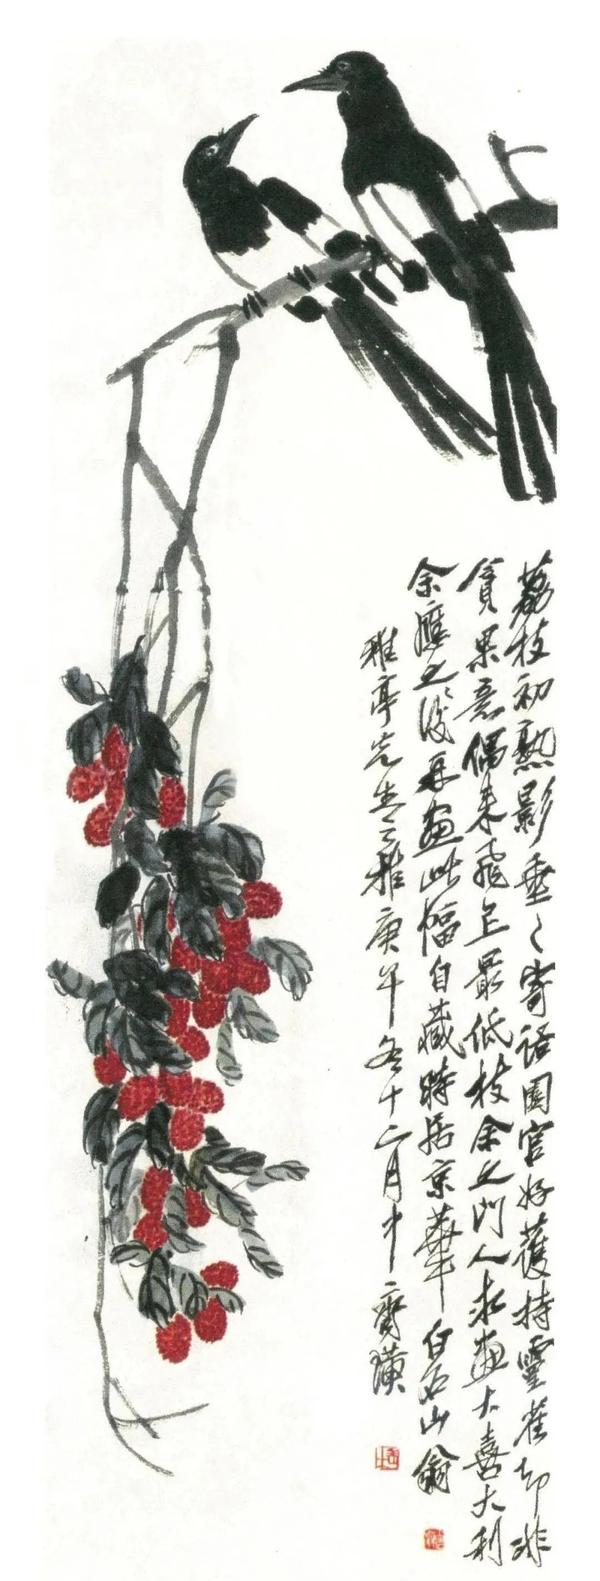 荔枝初熟影垂〻寄语园官好護持靈雀却非
貪果意偶来飛上最低枝余之门人求畫大喜大利
余應之後再畫此幅自藏時居京華白石山翁
雅亭先生之雅庚午冬十二月中齊璜